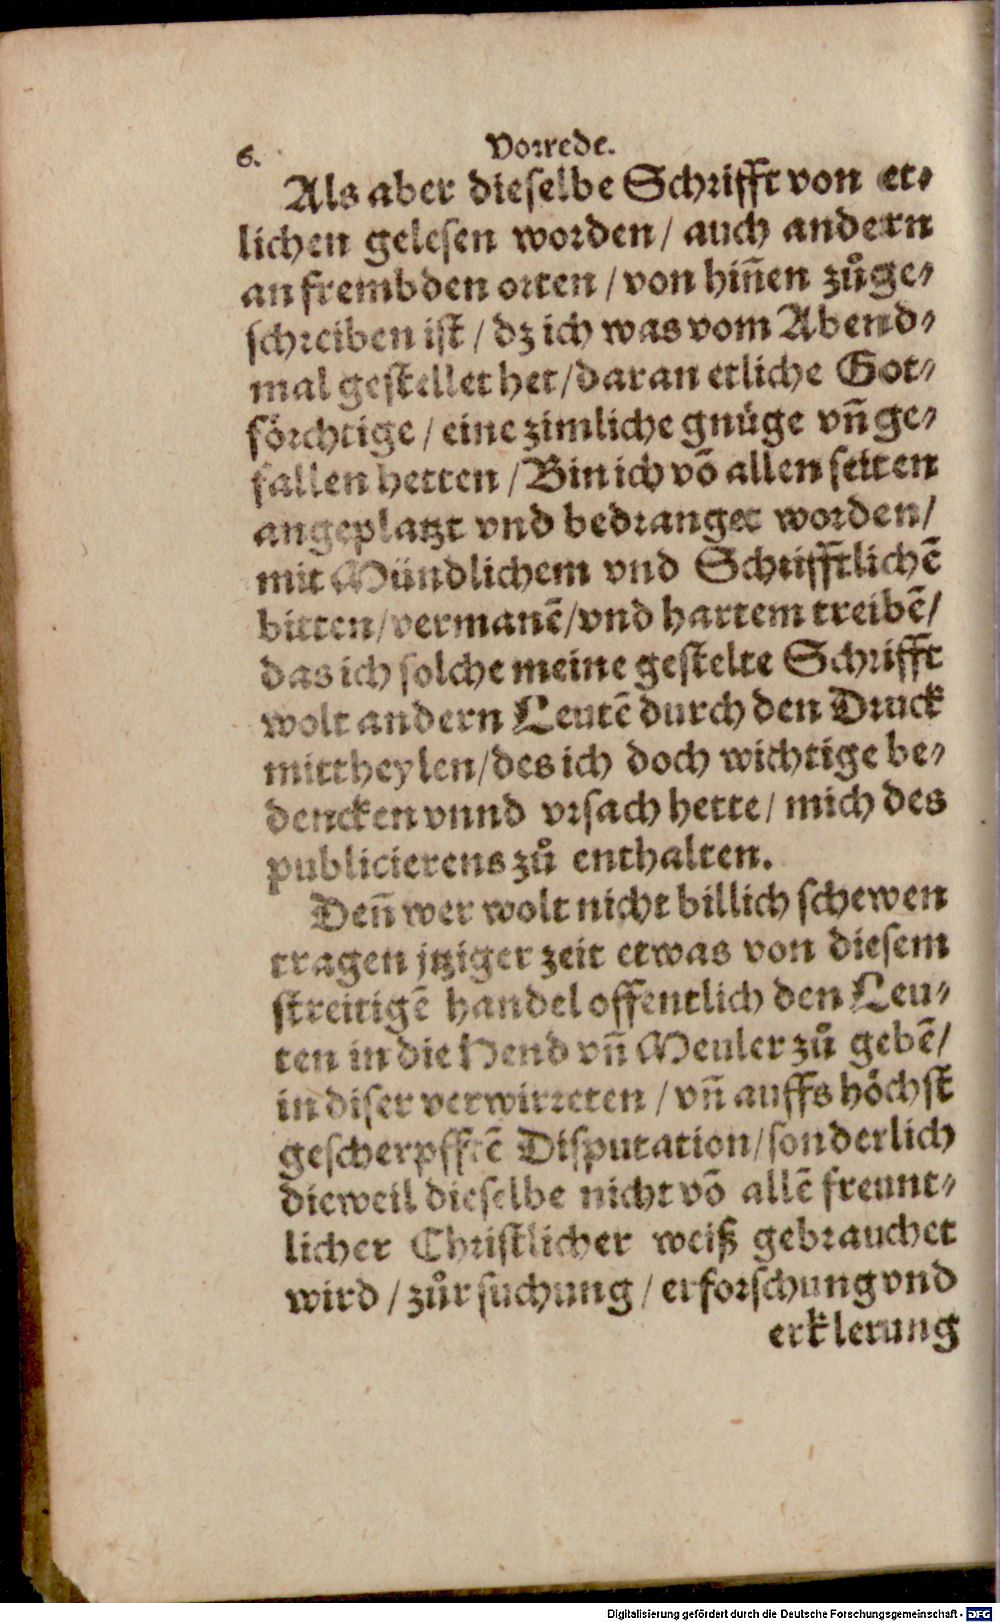 6. Vorrede.
Als aber dieselbe Schrifft von et⸗
lichen gelesen worden / auch andern
an frembden orten / von hiñen zůge⸗
schreiben ist / dz ich was vom Abend⸗
mal gestellet het / daran etliche Got⸗
förchtige / eine zimliche gnüge vñ ge⸗
fallen hetten / Bin ich võ allen seiten
angeplatzt vnd bedranget worden /
mit Mündlichem vnd Schrifftlichē
bitten / vermanē / vnd hartem treibē /
das ich solche meine gestelte Schrifft
wolt andern Leutē durch den Druck
mittheylen / des ich doch wichtige be⸗
dencken vnnd vrsach hette / mich des
publicierens zů enthalten.
Deñ wer wolt nicht billich schewen
tragen jtziger zeit etwas von diesem
streitigē handel offentlich den Leu⸗
ten in die Hend vñ Meuler zů gebē /
in diser verwirreten / vñ auffs höchst
gescherpfftē Disputation / sonderlich
dieweil dieselbe nicht võ allē freunt⸗
licher Christlicher weiß gebrauchet
wird / zůr suchung / erforschung vnd
erklerung
Digitalisierung gefördert durch die Deutsche Forschungsgemeinschaft - DFG